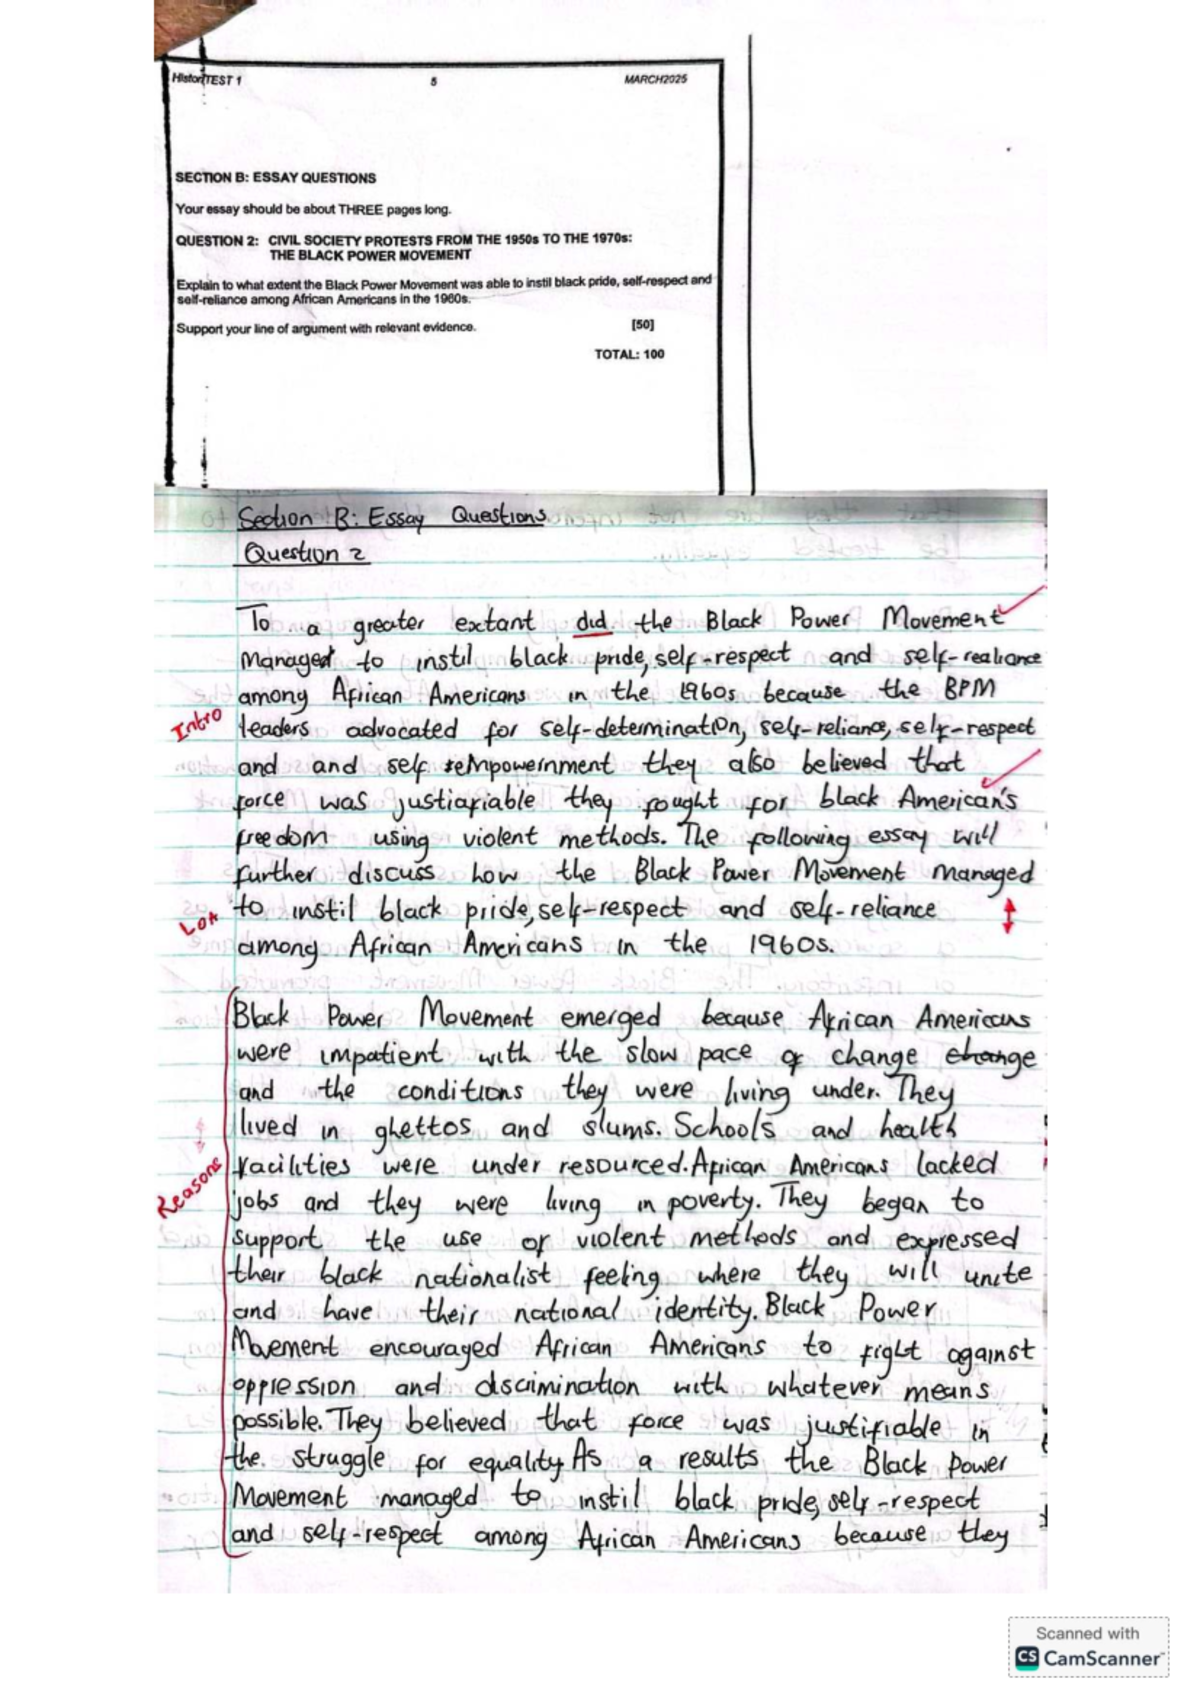 History TEST 1 5 MARCH2025
SECTION B: ESSAY QUESTIONS
Your essay should be about THREE pages long.
QUESTION 2: CIVIL SOCIETY PROTESTS FROM THE 1950s TO THE 1970s:
THE BLACK POWER MOVEMENT
Explain to what extent the Black Power Movement was able to instil black pride, self-respect and
self-reliance among African Americans in the 1960s.
Support your line of argument with relevant evidence. [50]
TOTAL: 100
Section B: Essay Questions
Question 2
To a greater extant did the Black Power Movement
Managed to instil black pride, self-respect and self-realiance
among African Americans in the 1960s because the BPM
Intro
leaders advocated for self-determination, self-reliance, self-respect
and and self empowernment they also believed that
force was justiafiable they fought for black American's
freedom using violent methods. The following essay will
further discuss how the Black Power Movement managed
LOA
to instil black pride, self-respect and self-reliance
among African Americans in the 1960s.
Black Power Movement emerged because African Americans
were impatient with the slow pace of change change
and the conditions they were living under. They
lived in ghettos and slums. Schools and health
Reasons
facilities were under resourced. African Americans lacked
jobs and they were living in poverty. They began to
support the use of violent methods and expressed
their black nationalist feeling where they will unite
and have their national identity. Black Power
Movement encouraged African Americans to fight against
oppression and discimination with whatever means
possible. They believed that force was justifiable in
the struggle for equality As a results the Black Power
Movement managed to instil black pride, self-respect
and self-respect among African Americans because they
Scanned with
CS CamScanner